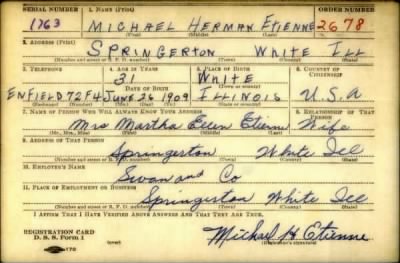 SERIAL NUMBER 1. NAME (Print) ORDER NUMBER
1763 MICHAEL HERMAN ETIENNE 2678
(First) (Middle) (Last)
2. ADDRESS (Print)
SPRINGERTON WHITE ILL
(Number and street or R. F. D. number) (Town) (County) (State)
3. TELEPHONE 4. AGE IN YEARS 5. PLACE OF BIRTH 6. COUNTRY OF CITIZENSHIP
31 WHITE
DATE OF BIRTH (Town or county)
ENFIELD 72F4 JUNE 26 1909 ILLINOIS U.S.A
(Exchange) (Number) (Mo.) (Day) (Yr.) (State or country)
7. NAME OF PERSON WHO WILL ALWAYS KNOW YOUR ADDRESS 8. RELATIONSHIP OF THAT PERSON
Mrs Martha Ellen Etienne Wife
(Mr., Mrs., Miss) (First) (Middle) (Last)
9. ADDRESS OF THAT PERSON
Springerton White Ill
(Number and street or R. F. D. number) (Town) (County) (State)
10. EMPLOYER'S NAME
Swan and Co
11. PLACE OF EMPLOYMENT OR BUSINESS
Springerton White Ill
(Number and street or R. F. D. number) (Town) (County) (State)
I AFFIRM THAT I HAVE VERIFIED ABOVE ANSWERS AND THAT THEY ARE TRUE.
REGISTRATION CARD
D. S. S. Form 1 (over) Michael H Etienne
(Registrant's signature)